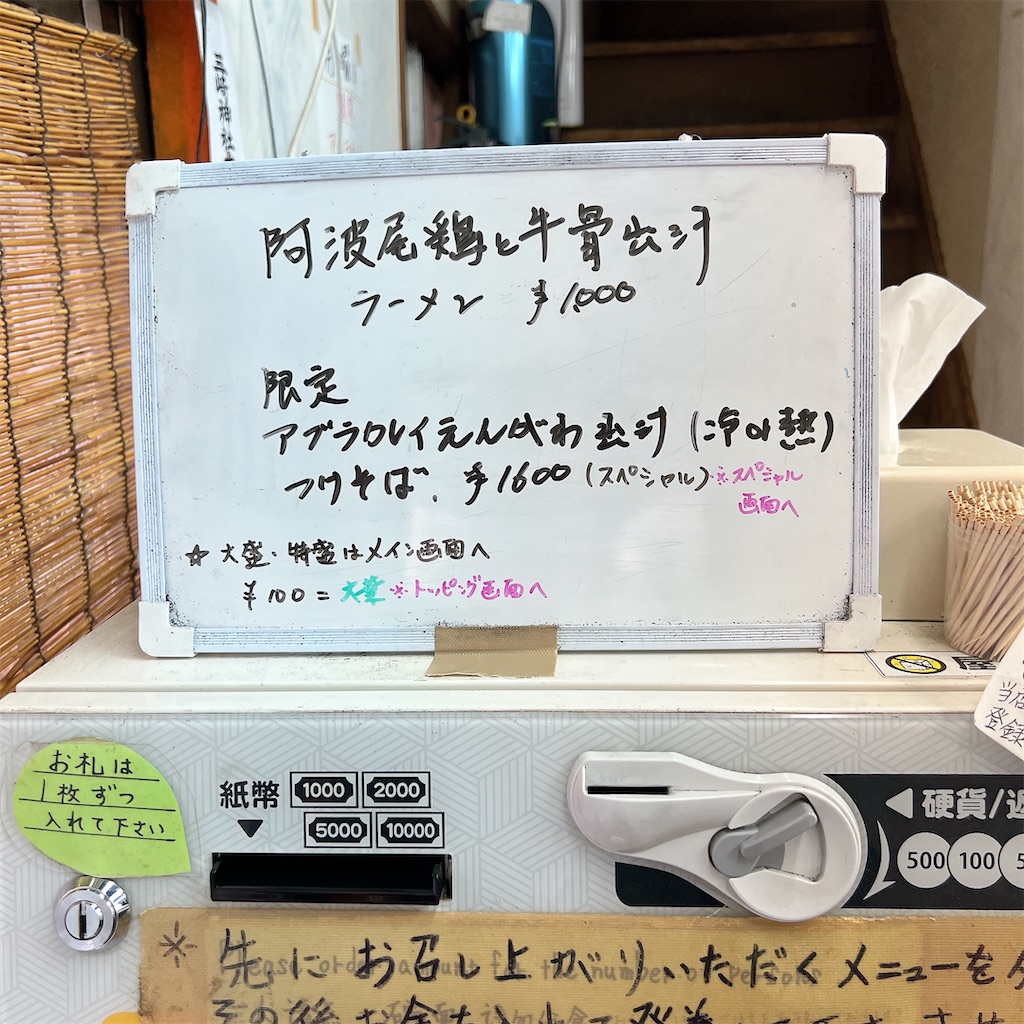 三崎神社
阿波尾鶏と牛骨出汁
ラーメン ¥1,000
限定
アブラカレイえんがわ出汁 (冷or熱)
つけそば、¥1600 (スペシャル) ※スペシャル
画面へ
☆ 大盛・特盛はメイン画面へ
¥100=大盛 ※トッピング画面へ
当店
登録
お札は
1枚ずつ
入れて下さい
紙幣
1000 2000
5000 10000
硬貨/返
500 100 5
※先にお召し上がりいただくメニューを
その後お金を入れて